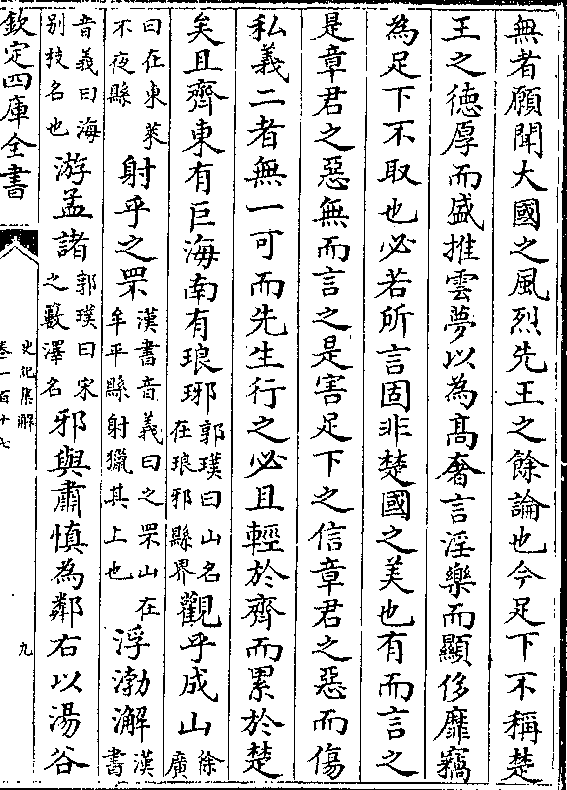 無者願聞大國之風烈先王之餘論也今足下不稱楚
王之徳厚而盛推雲夢以為髙奢言淫樂而顯侈靡竊
為足下不取也必若所言固非楚國之美也有而言之
是章君之惡無而言之是害足下之信章君之惡而傷
私義二者無一可而先生行之必且輕於齊而累於楚
矣且齊東有巨海南有琅邪郭璞曰山名在琅邪縣界觀乎成山徐廣
曰在東萊不夜縣射乎之罘漢書音義曰之罘山在牟平縣射獵其上也浮渤澥漢書
音義曰海别枝名也游孟諸郭璞曰宋之藪澤名邪與肅慎為鄰右以湯谷
欽定四庫全書
史記集解
卷一百十七
九